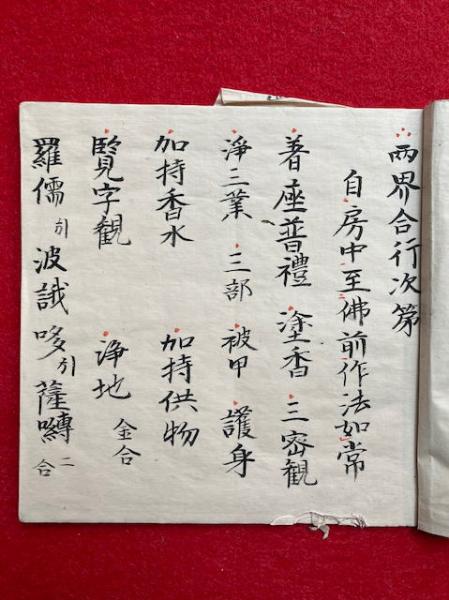 両界合行次第
自房中至佛前作法如常
着座普禮 塗香 三密観
淨三業 三部 被甲 護身
加持香水 加持供物
覽字観 淨地 金合
羅儒引波誐哆引薩嚩二合